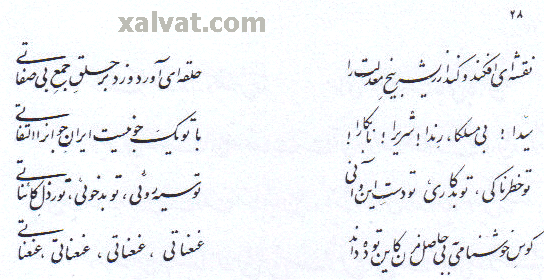 xalvat.com
۲۸
نقشه‌ای افکند و کند از ریشه بیخ معدلت را
حلقه‌ای آورد و زد بر حلق جمع بی صفاتی
سیدا! بی مسلکا، رندا! شریرا! نابکارا!
با تو یک جو نیست ایران جوانرا التفاتی
تو خطرناکی، تو بدکاری، تو دست این و آنی
تو سیه روئی، تو بدخوئی، تو رذل کائناتی
کوس خوشنامی بی حاصل مزن کاین توده داند
عنعناتی، عنعناتی، عنعناتی، عنعناتی